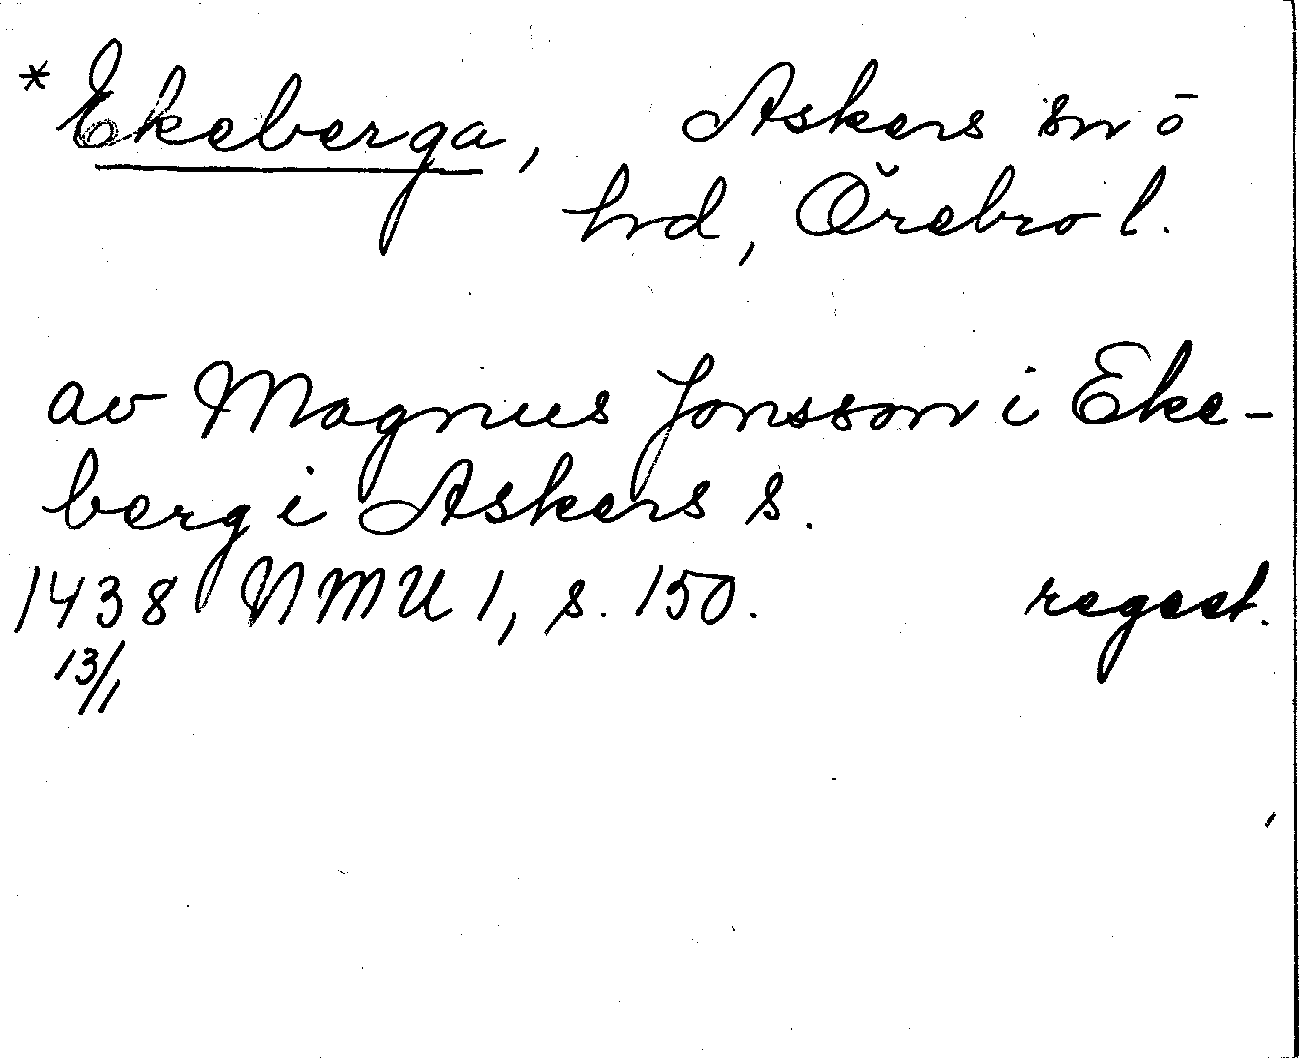 *Ekeberga, Askers sn ō
hrd, Örebro l.
av Magnus Jonsson i Eke-
berg i Askers s.
1438 NMU 1, s. 150. regest.
13/1